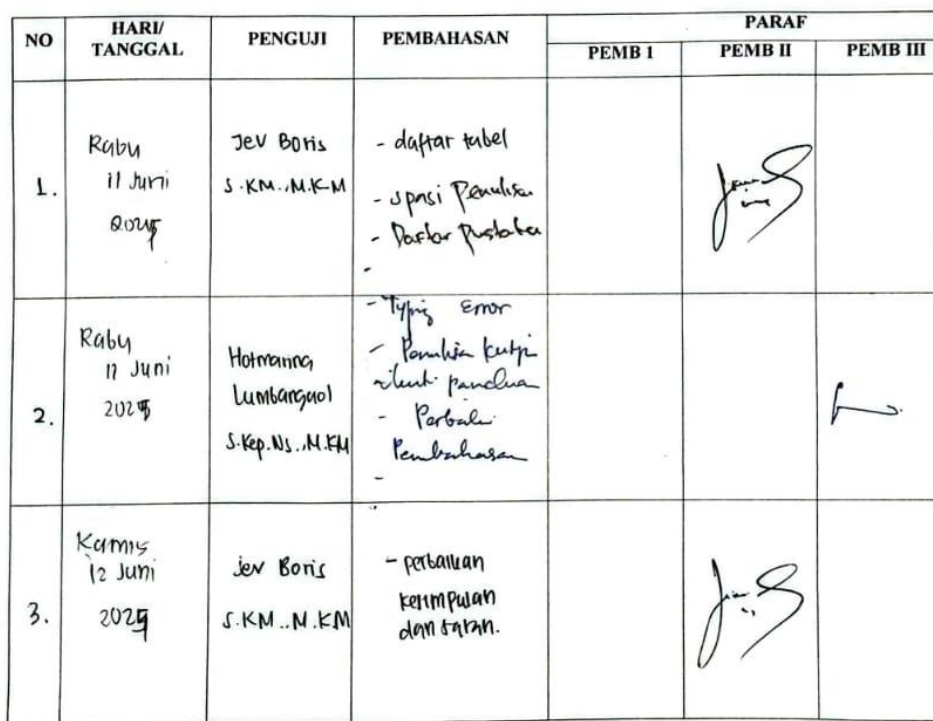 NO HARI/ TANGGAL PENGUJI PEMBAHASAN PARAF
PEMB 1 PEMB II PEMB III
1.
Rabu
11 Juni
2025
Jev Boris
S.KM..M.KM
- daftar tabel
- spasi Penulisan
- Daftar Pustaka
-
2.
Rabu
11 Juni
2025
Hotmarina
Lumbangaol
S.Kep.Ns..M.KM
- Typing Error
- Penulisan kutip
panduan
- Perbaiki
Pembahasan
-
3.
Kamis
12 Juni
2025
Jev Boris
S.KM..M.KM
- perbaikan
kesimpulan
dan saran.